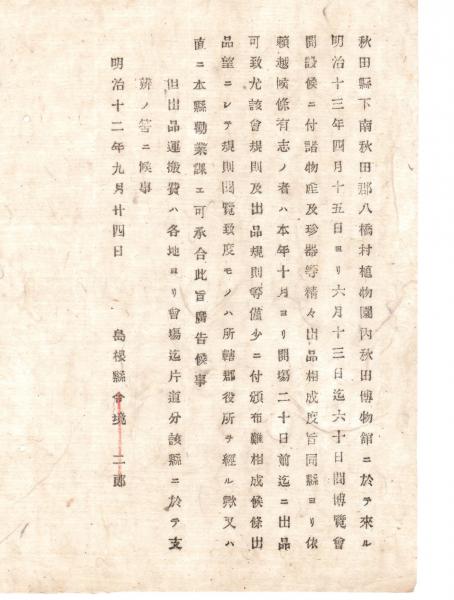 秋田縣下南秋田郡八橋村植物園內秋田博物館ニ於テ來ル
明治十三年四月十五日ヨリ六月十三日迄六十日間博覽會
開設候ニ付諸物產及珍器等精々出品相成度旨同縣ヨリ依
賴越候條有志ノ者ハ本年十月ヨリ開場二十日前迄ニ出品
可致尤該會規則及出品規則等僅少ニ付頒布難相成候條出
品望ニシテ規則閱覽致度モノハ所轄郡役所ヲ經ル歟又ハ
直ニ本縣勸業課エ可承合此旨廣告候事
但出品運搬費ハ各地ヨリ會場迄片道分該縣ニ於テ支
辨ノ筈ニ候事
明治十二年九月廿四日
島根縣令境二郎